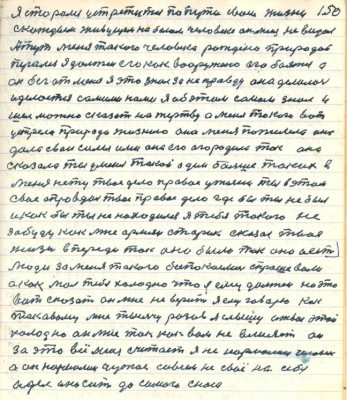 150
Я стороне устретится по пути свои жизни
скитаясь живущем на белом человека он меня не видал
А тут меня такого человека рождено природой
пугали я должен его как вооружено его боятся а
он без от меня я это знал за не правду она делалось
и делается самими нами я об этом самом знал и
шел можно сказать на жертву а меня такого вот
устрела природа жизнию она меня пожалела она
дала свои силы или она его огородила так она
сказала ты у меня такой один больше таких в
меня нету твое дело правое ты в этом
свое оправдал твое правое дело где бы ты не был
и как бы ты не находился я тебя такого не
забуду как мне армян старик сказал твоя
жизнь впереди так оно было так оно и есть
люди за меня такого беспокоились спрашивали
а как мол тебе холодно что я ему должен на это
вот сказать он мне не верит я ему говорю как
таковому мне тысячу разов я слышу слова этой
холодно он же так как вам не влияет он
за это всё меня считает я не нормальный человек
а он нормальный чужое совсем не своё на себя
одел и носить до самого сноса